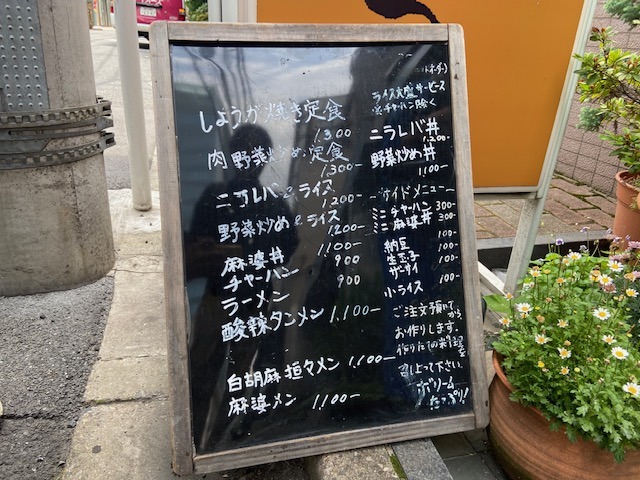 しょうが焼き定食
1.300
肉野菜炒め定食
1.300-
ニラレバ&ライス
1.200-
野菜炒め&ライス
1.200-
麻婆丼 1.100-
チャーハン 900
ラーメン 900
酸辣タンメン 1,100-
白胡麻坦々メン 1.100-
麻婆メン 1.100-
ライス大盛サービス
※チャーハン除く
ニラレバ丼
1.200-
野菜炒め丼
1.100-
〜サイドメニュー〜
ミニチャーハン 300-
ミニ麻婆丼 300-
納豆 100-
生玉子 100-
ザーサイ 100-
小ライス 100-
ご注文頂いてから
お作りします。
作りたての料理を
召し上って下さい。
ボリューム
たっぷり!